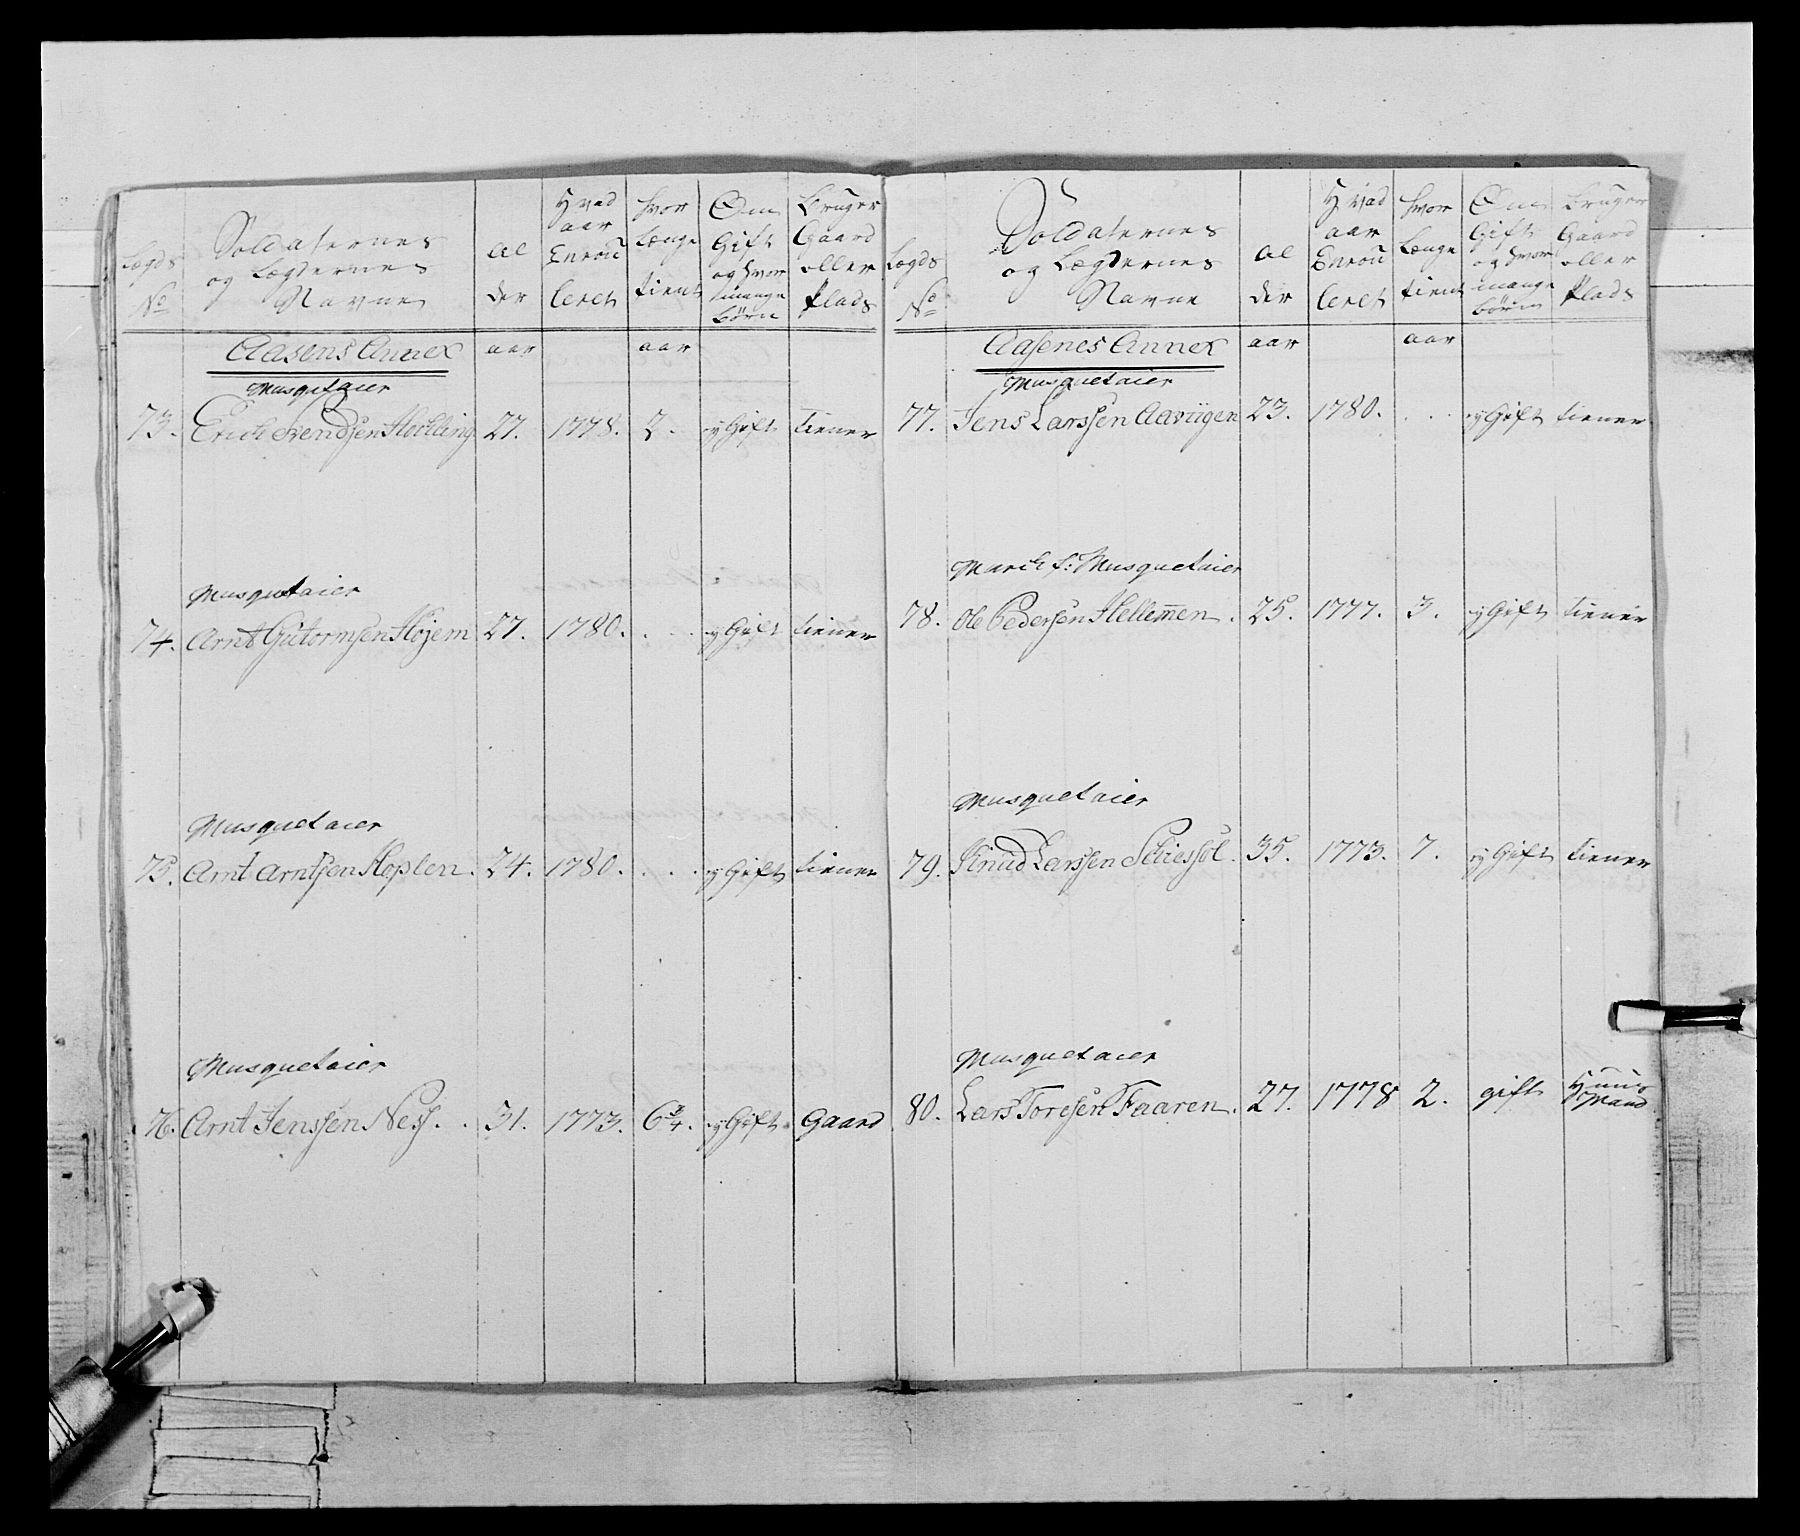 Lægds No | Soldaternes og Lægdernes Navne | Al der | Hvad aar Enroulleret | Hvor Længe tient | Om Gift og hvor mange börn | Bruger Gaard eller Plads
Aasens Annex | aar | aar
Musquetaier
73. Erich Svendsen Heelling 27. 1778. 2. ej Gift tiener
Musquetaier
74. Arnt Gutormsen Höjem 27. 1780. . . ej Gift tiener
Musquetaier
75. Arnt Arntsen Hoplen. 24. 1780. . . . ej Gift tiener
Musquetaier
76. Arnt Jenssen Ness. . 31. 1773. 6 3/4. ej Gift. Gaard
Lægds No | Soldaternes og Lægdernes Navne | Al der | Hvad aar Enroulleret | Hvor Længe tient | Om Gift og hvor mange börn | Bruger Gaard eller Plads
Aasenes Annex | aar | aar
Musquetaier
77. Jens Larssen Aaviigen 23. 1780. . . . ej Gift tiener
March f: Musquetaier
78. Ole Pedersen Hellemen. 25. 1777. 3. ej Gift tiener
Musquetaier
79. Knud Larssen 35. 1773. 7. ej Gift tiener
Musquetaier
80. Lars Toresen Faaren. 27. 1778 2. gift Huus Mand